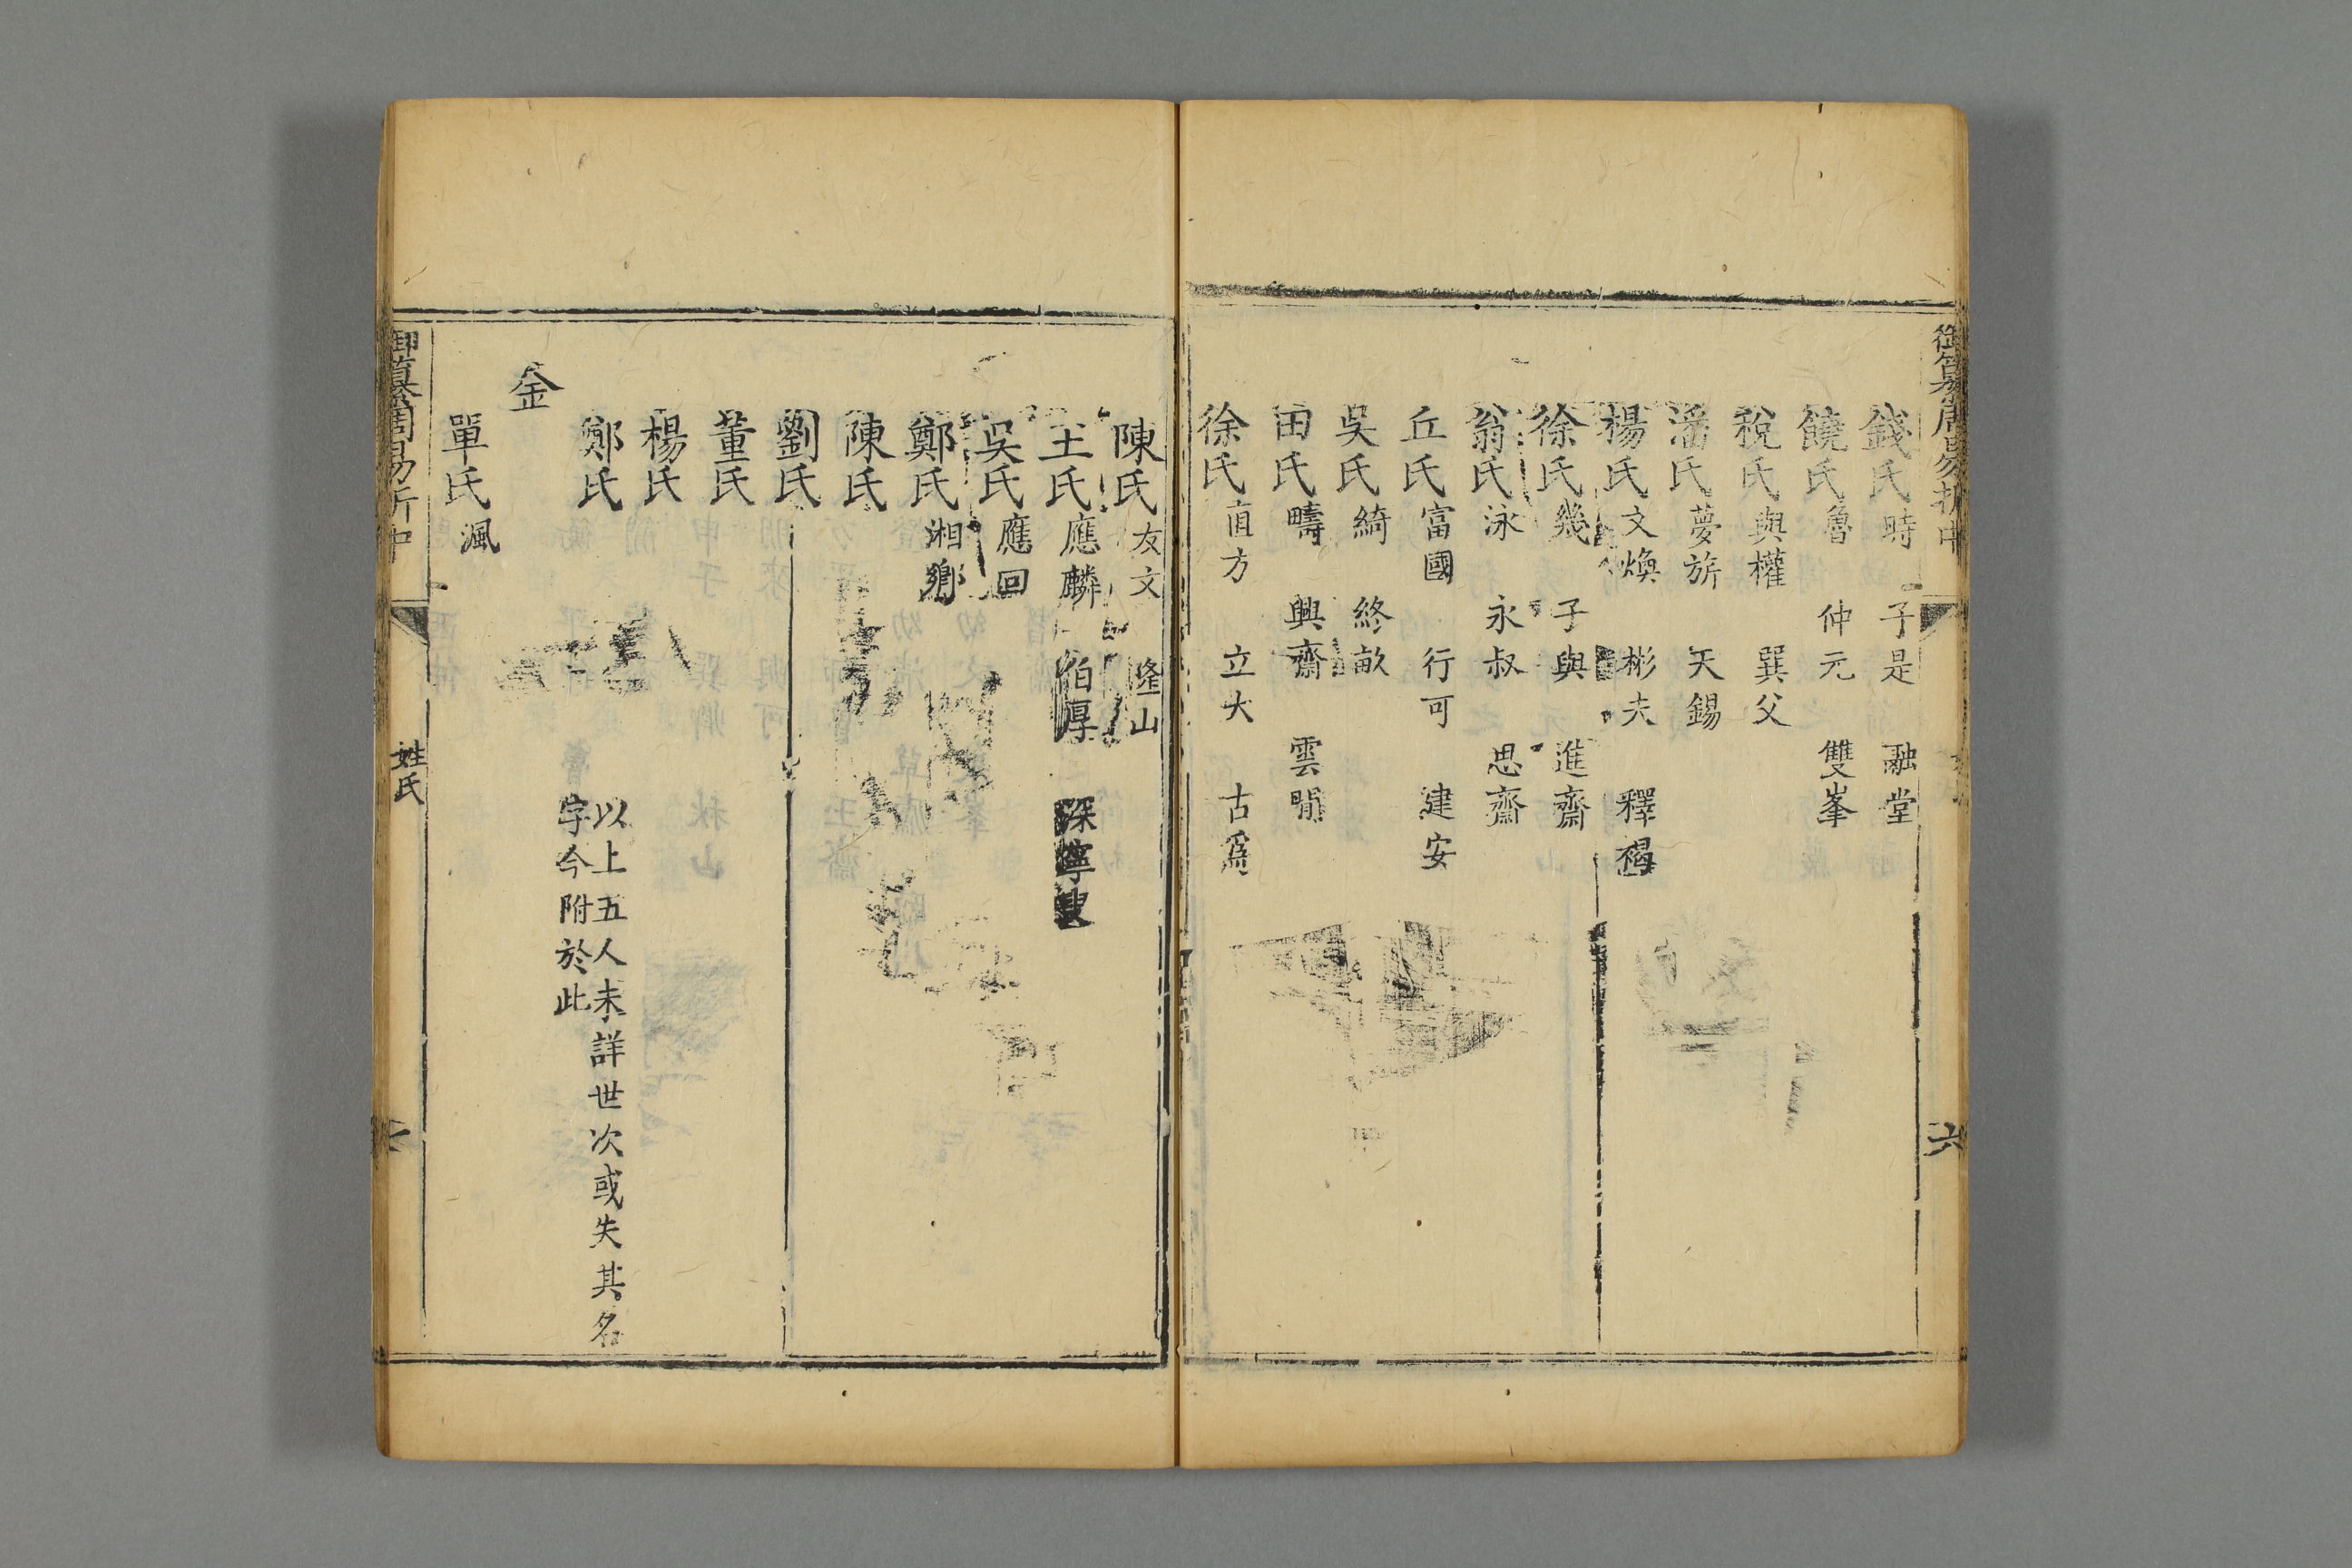 御纂周易折中
六
錢氏時 子是 融堂
饒氏魯 仲元 雙峯
稅氏與權 巽父
潘氏夢旂 天錫
楊氏文煥 彬夫 釋褐
徐氏幾 子與 進齋
翁氏泳 永叔 思齋
丘氏富國 行可 建安
吳氏綺 終畝
田氏疇 興齋 雲閒
徐氏直方 立大 古爲
陳氏友文 隆山
王氏應麟 伯厚 深寧叟
吳氏應回
鄭氏湘鄉
陳氏
劉氏
董氏
楊氏
鄭氏
以上五人未詳世次或失其名
字今附於此
金
單氏渢
御纂周易折中
姓氏
七